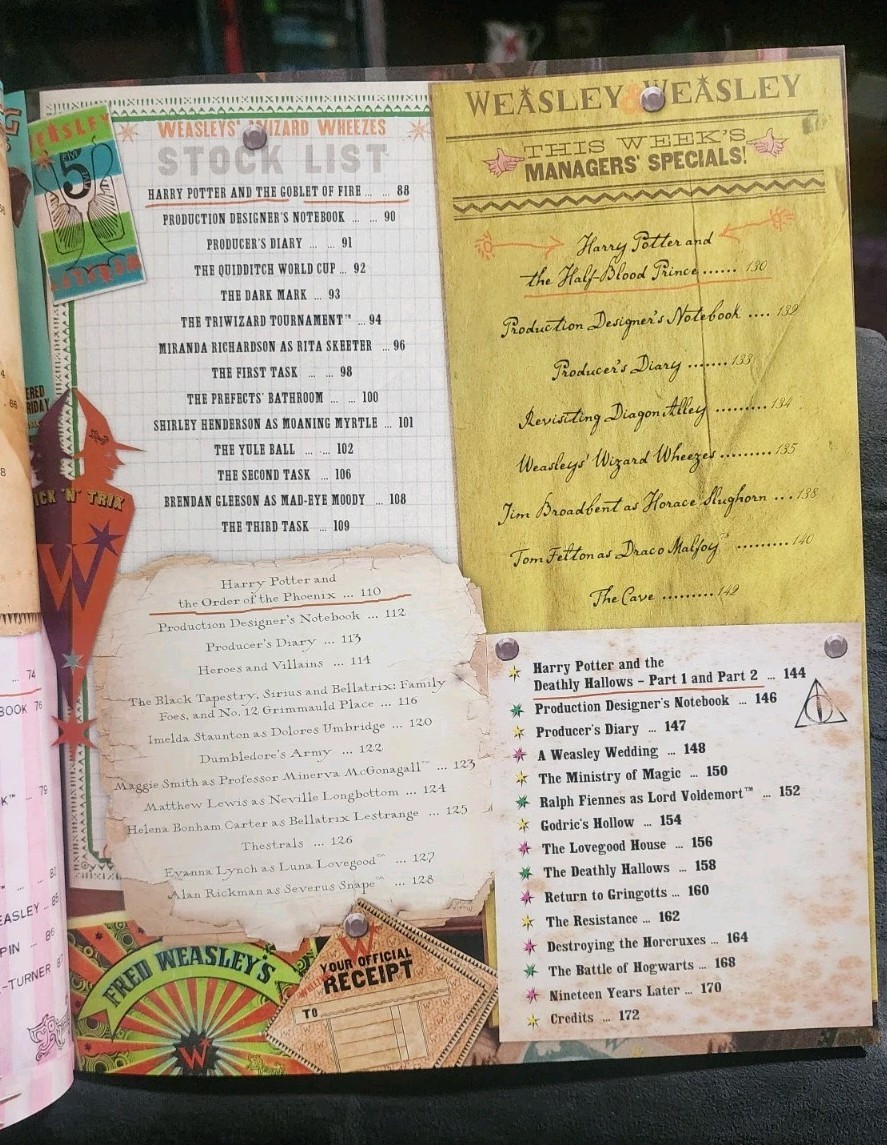 WEASLEYS' WIZARD WHEEZES
STOCK LIST
HARRY POTTER AND THE GOBLET OF FIRE ... ... 88
PRODUCTION DESIGNER'S NOTEBOOK ... ... 90
PRODUCER'S DIARY ... ... 91
THE QUIDDITCH WORLD CUP ... 92
THE DARK MARK ... 93
THE TRIWIZARD TOURNAMENT™ ... 94
MIRANDA RICHARDSON AS RITA SKEETER ... 96
THE FIRST TASK ... ... 98
THE PREFECTS' BATHROOM ... ... 100
SHIRLEY HENDERSON AS MOANING MYRTLE ... 101
THE YULE BALL ... ... 102
THE SECOND TASK ... 106
BRENDAN GLEESON AS MAD-EYE MOODY ... 108
THE THIRD TASK ... 109
Harry Potter and
the Order of the Phoenix ... 110
Production Designer's Notebook ... 112
Producer's Diary ... 113
Heroes and Villains ... 114
The Black Tapestry, Sirius and Bellatrix: Family
Foes, and No. 12 Grimmauld Place ... 116
Imelda Staunton as Dolores Umbridge ... 120
Dumbledore's Army ... 122
Maggie Smith as Professor Minerva McGonagall™ ... 123
Matthew Lewis as Neville Longbottom ... 124
Helena Bonham Carter as Bellatrix Lestrange ... 125
Thestrals ... 126
Evanna Lynch as Luna Lovegood™ ... 127
Alan Rickman as Severus Snape™ ... 128
WEASLEY & WEASLEY
THIS WEEK'S
MANAGERS' SPECIALS!
Harry Potter and
the Half-Blood Prince ...... 130
Production Designer's Notebook .... 132
Producer's Diary ....... 133
Revisiting Diagon Alley ......... 134
Weasleys' Wizard Wheezes ......... 135
Jim Broadbent as Horace Slughorn ... 138
Tom Felton as Draco Malfoy™ ......... 140
The Cave ......... 142
Harry Potter and the
Deathly Hallows – Part 1 and Part 2 ... 144
Production Designer's Notebook ... 146
Producer's Diary ... 147
A Weasley Wedding ... 148
The Ministry of Magic ... 150
Ralph Fiennes as Lord Voldemort™ ... 152
Godric's Hollow ... 154
The Lovegood House ... 156
The Deathly Hallows ... 158
Return to Gringotts ... 160
The Resistance ... 162
Destroying the Horcruxes ... 164
The Battle of Hogwarts ... 168
Nineteen Years Later ... 170
Credits ... 172
WEASLEY
5
ICK 'N' TRIX
W
FRED WEASLEY'S
W
W
YOUR OFFICIAL
RECEIPT
TO
ERED
RIDAY
... 74
BOOK 76
... 79
EASLEY ... 85
PIN ... 86
-TURNER 87